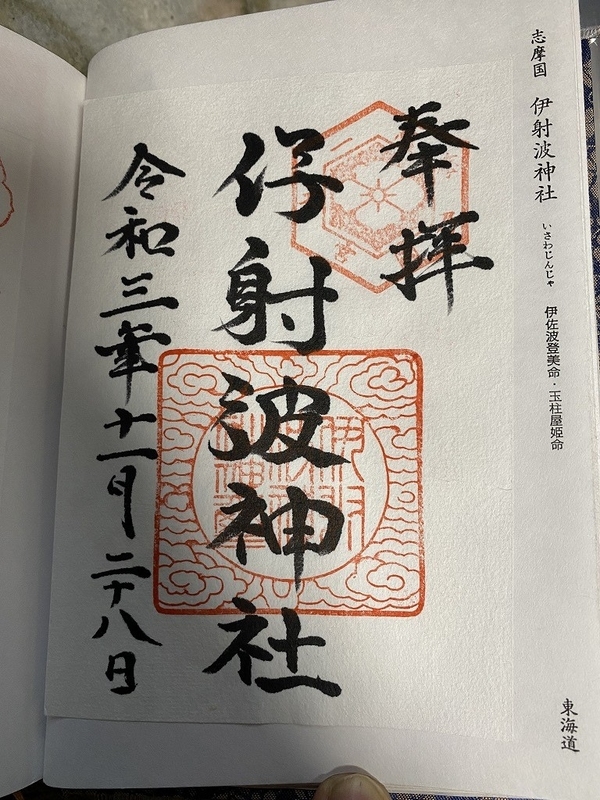 志摩国 伊射波神社 いさわじんじゃ 伊佐波登美命・玉柱屋姫命
東海道
奉拝
伊射波神社
令和三年十一月二十八日